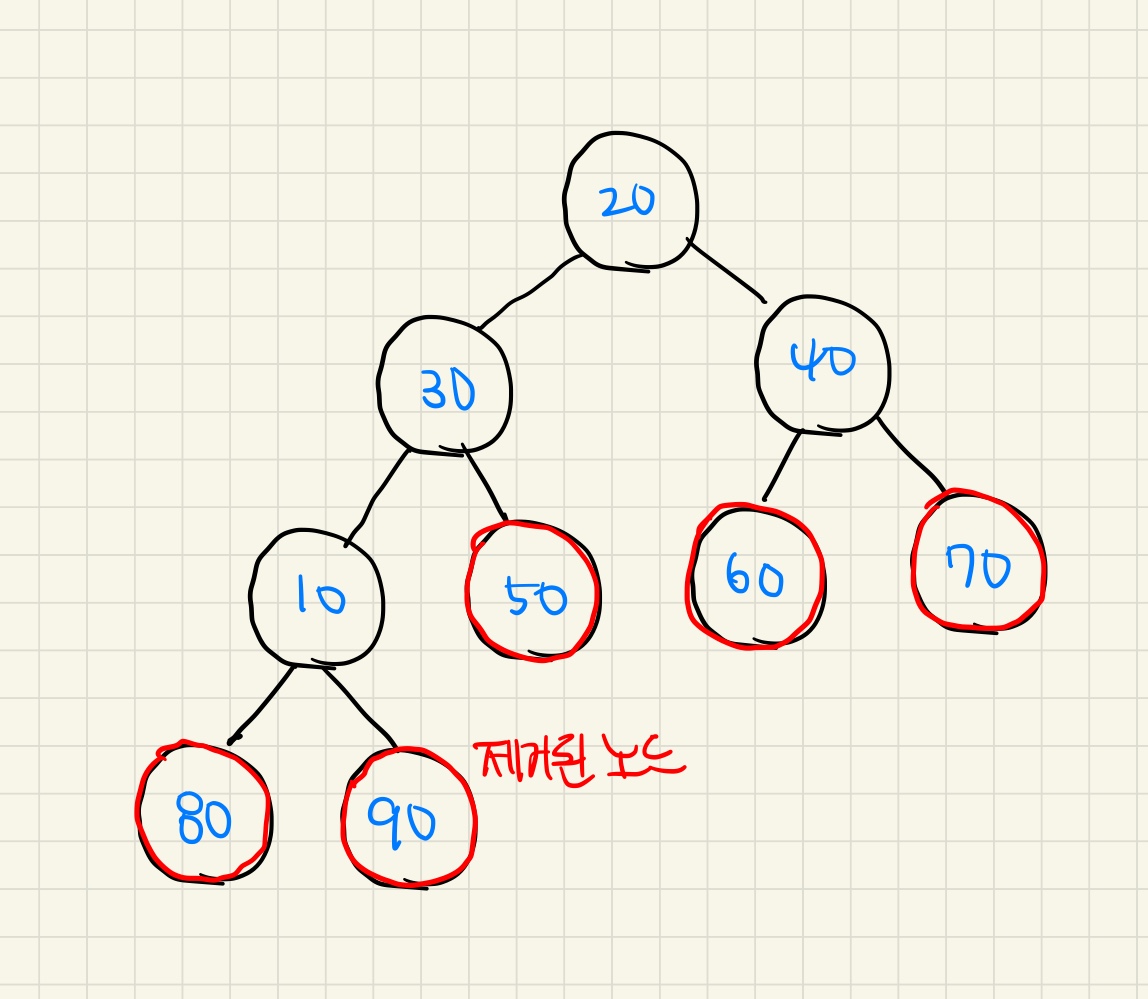 20
30
40
10
50
60
70
80
90
제거된 노드